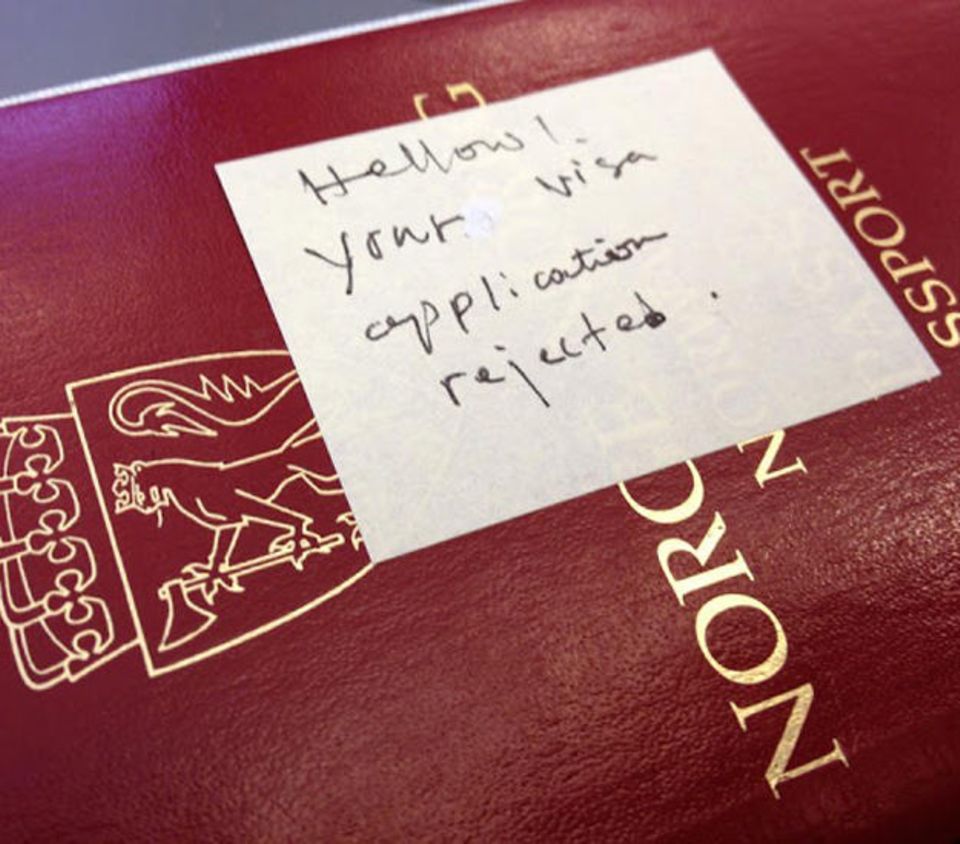 Hellow!.
Your visa
application
rejected .
NORG
G
N
SSPORT